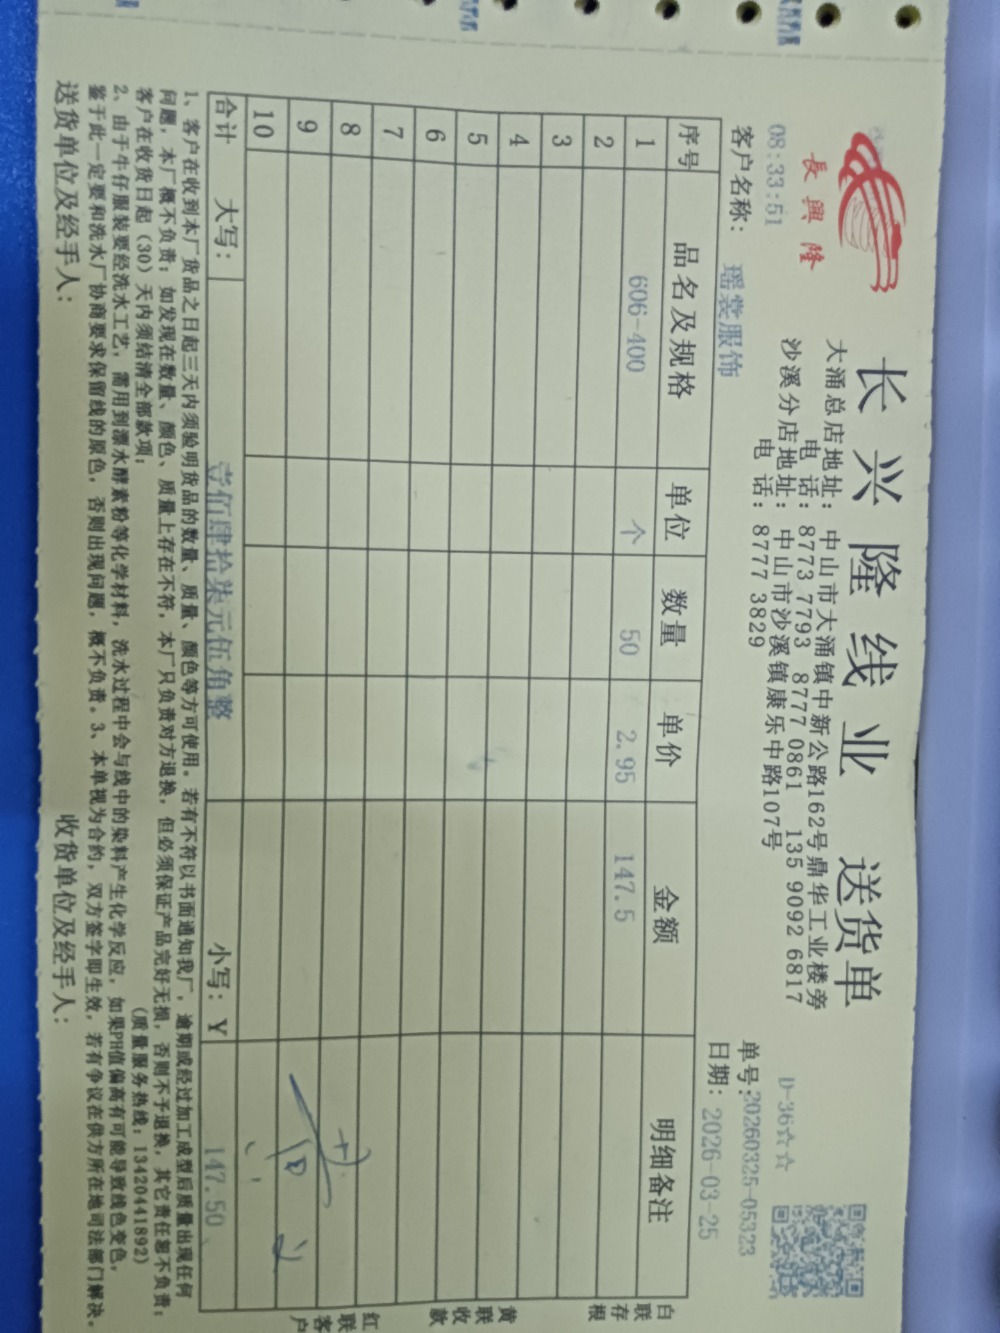 長興隆
长兴隆线业 送货单
D-36☆☆
大涌总店地址: 中山市大涌镇中新公路162号鼎华工业楼旁
电 话: 8773 7793 8777 0861 135 9092 6817
沙溪分店地址: 中山市沙溪镇康乐中路107号
电 话: 8777 3829
08:33:51
单号:20260325-05323
客户名称: 瑶裳服饰
日期: 2026-03-25
序号 品名及规格 单位 数量 单价 金额 明细备注
1 606-400 个 50 2.95 147.5
2
3
4
5
6
7
8
9
10
合计 大写: 壹佰肆拾柒元伍角整 小写: ¥ 147.50
白联存根
黄联收款
红联客户
1、客户在收到本厂货品之日起三天内须验明货品的数量、质量、颜色等方可使用。若有不符以书面通知我厂，逾期或经过加工成型后质量出现任何
问题，本厂概不负责；如发现在数量、颜色、质量上存在不符，本厂只负责对方退换，但必须保证产品完好无损，否则不予退换，其它责任恕不负责；
客户在收货日起（30）天内须结清全部款项； (质量服务热线：13420441892)
2、由于牛仔服装要经洗水工艺，需用到漂水酵素粉等化学材料，洗水过程中会与线中的染料产生化学反应，如果PH值偏高有可能导致线色变色，
鉴于此一定要和洗水厂协商要求保留线的原色，否则出现问题，概不负责。3、本单视为合约，双方签字即生效，若有争议在供方所在地司法部门解决。
送货单位及经手人: 收货单位及经手人: